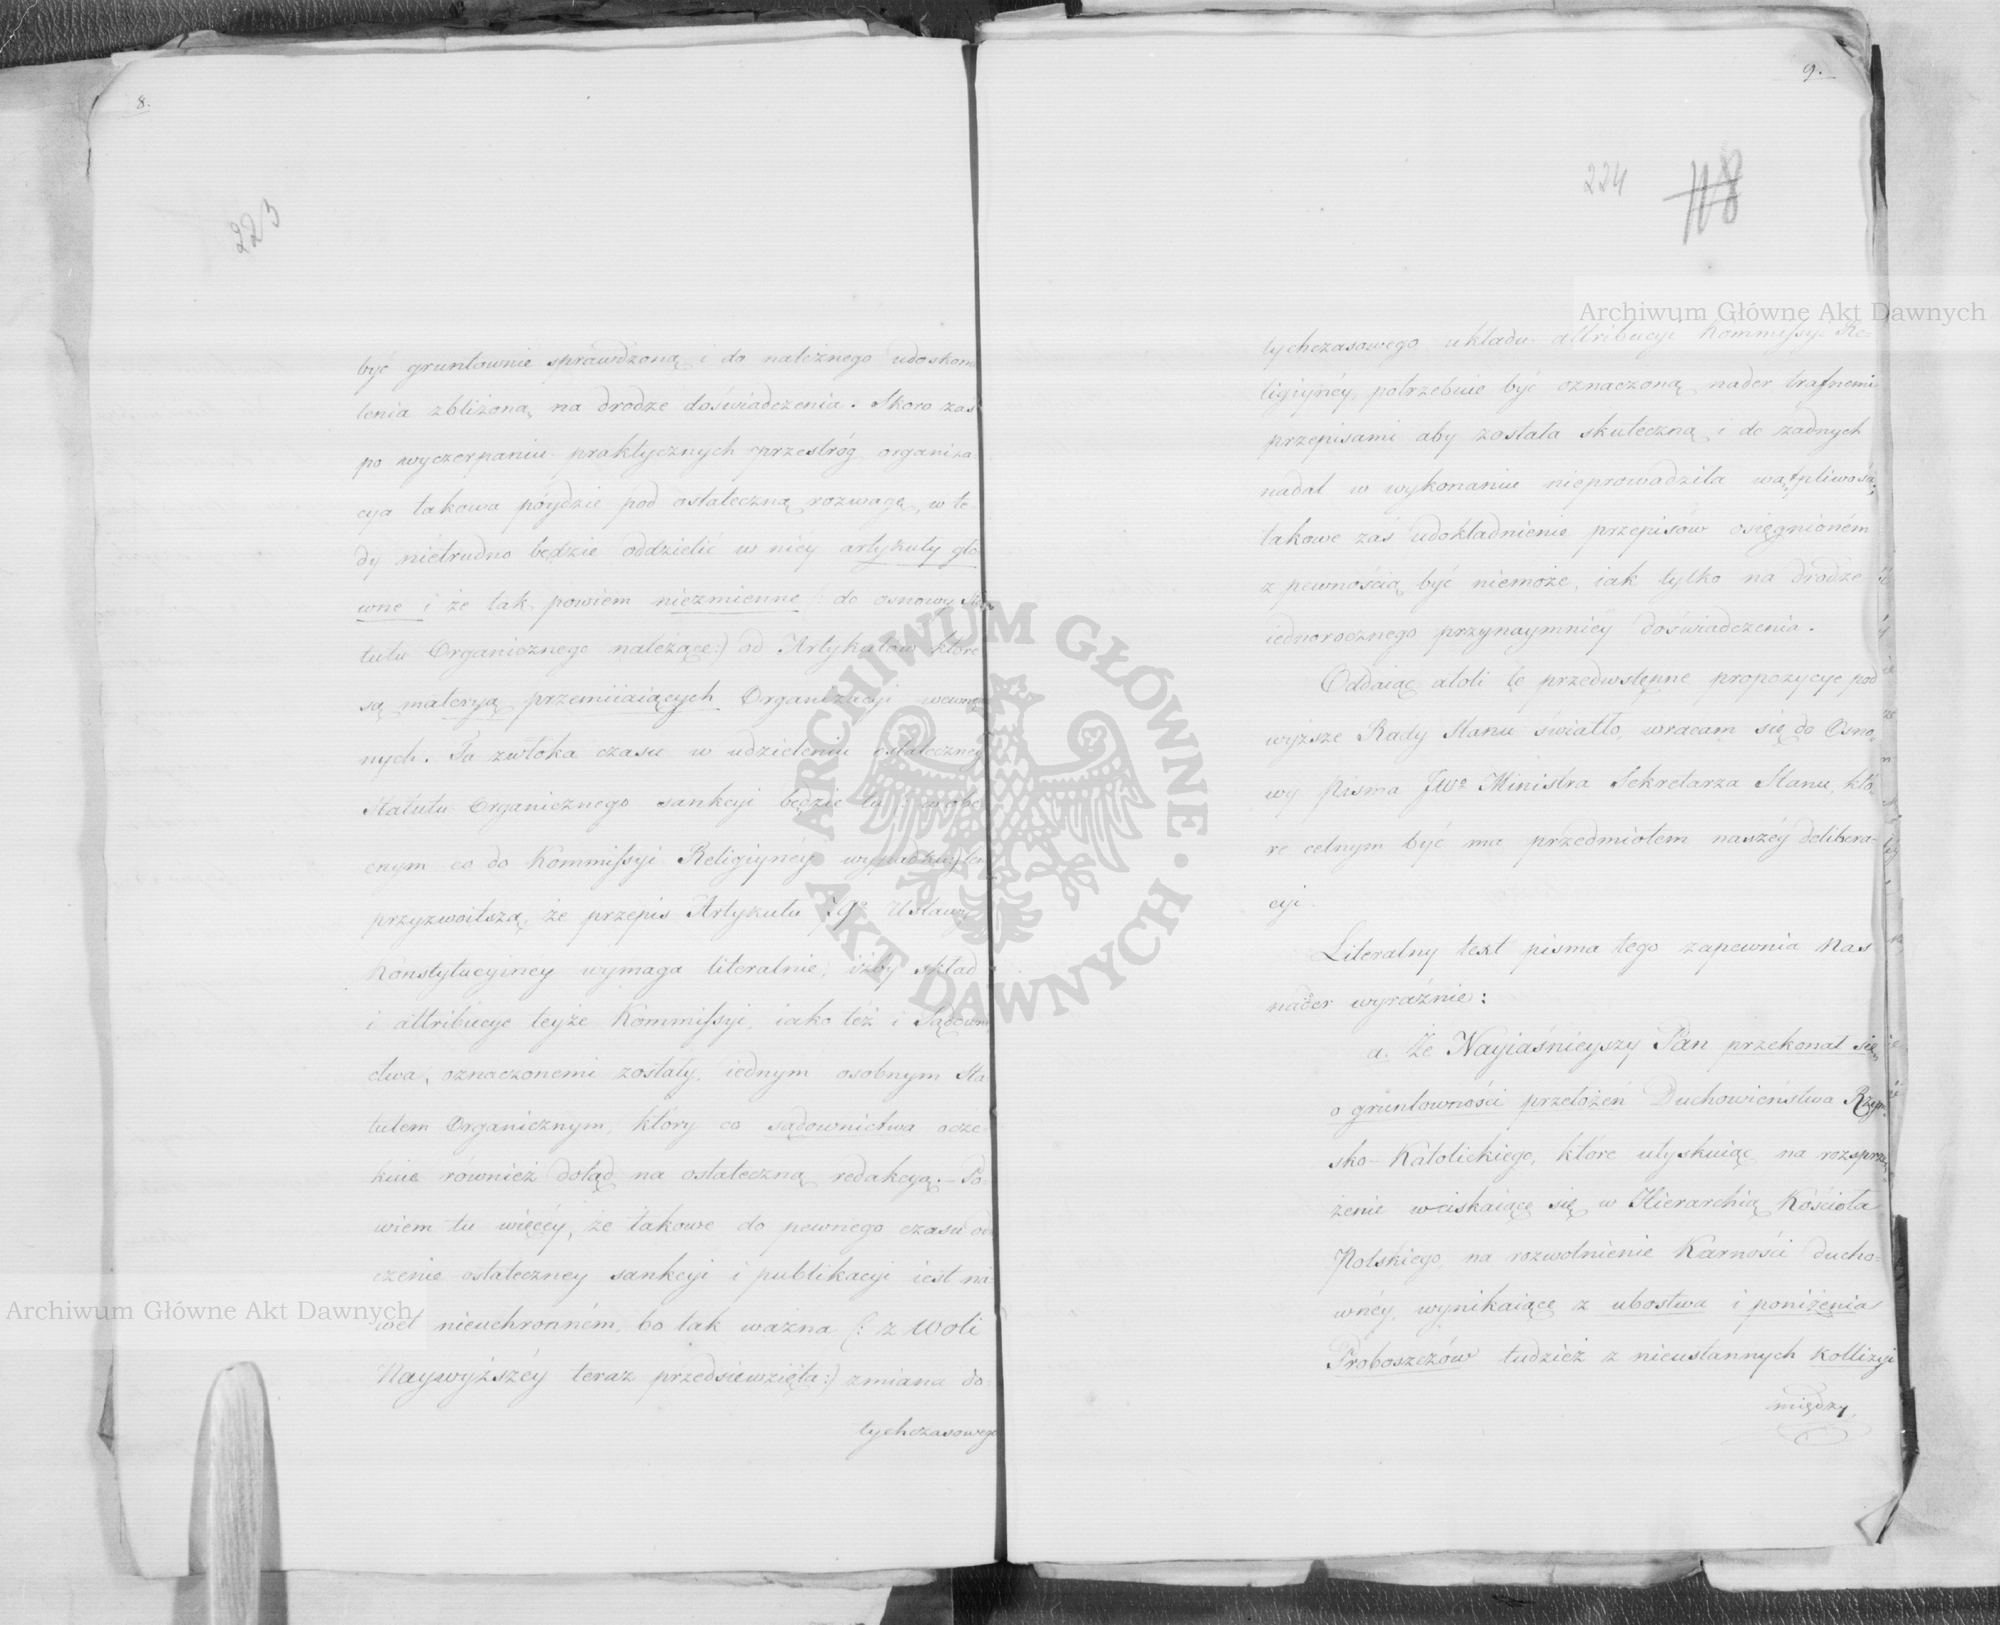 8.
223
być gruntownie sprawdzoną i do należnego udoskona
lenia zbliżoną na drodze doświadczenia. Skoro zaś
po wyczerpaniu praktycznych przestróg organiza
cya takowa póydzie pod ostateczną rozwagę, w te-
dy nietrudno będzie oddzielić w niey artykuły głó
wne i że tak powiem niezmienne (: do osnowy Sta
tutu Organicznego należące:) od Artykułów które
są materyą przemiiaiących Organizacyi wewnętrz
nych. Ta zwłoka czasu w udzieleniu ostateczney
Statutu Organicznego sankcyi będzie tu w obe
cnym co do Kommissyi Religiynéy wypadku tem
przyzwoitszą, że przepis Artykułu Ustawy
Konstytucyiney wymaga literalnie, iżby skład
i attribucye teyże Kommissyi, iako téż i Sądowni
ctwa, oznaczonemi zostały, iednym osobnym Sta
tutem Organicznym, który co sądownictwa ocze-
kuie również dotąd na ostateczną redakcyą. – Po-
wiem tu więcéy, że takowe do pewnego czasu od
czenie ostateczney sankcyi i publikacyi iest na-
wet nieuchronném, bo tak ważna (: z Woli
Naywyższéy teraz przedsięwzięta:) zmiana do-
tychczasowego
9.
224
118
tychczasowego układu attribucyi Kommissyi Re-
ligiynéy, potrzebuie być oznaczoną nader trafnemi
przepisami aby została skuteczną i do żadnych
nadal w wykonaniu nieprowadziła wątpliwości;
takowe zaś udokładnienie przepisów osięgnioném
z pewnością być niemoże, iak tylko na drodze
iednorocznego przynaymniéy doświadczenia.
Oddaiąc atoli tę przedwstępne propozycye pod
wyższe Rady Stanu światło, wracam się do Osno-
wy Pisma JWo Ministra Sekretarza Stanu, któ-
re celnym być ma przedmiotem naszéy delibera-
cyi.
Literalny text pisma tego zapewnia nas
nader wyraźnie:
a. Że Nayiaśnieyszy Pan przekonał się
o gruntowności przełożeń Duchowieństwa Rzym-
sko-Katolickiego, które utyskuiąc na rozsprzę-
żenie wciskaiące się w Hierarchią Kościoła
Polskiego, na rozwolnienie Karności ducho-
wnéy, wynikaiące z ubostwa i poniżenia
Proboszczów tudzież z nieustannych kollizyi
między
Archiwum Główne Akt Dawnych
Archiwum Główne Akt Dawnych
ARCHIWUM GŁÓWNE
AKT DAWNYCH